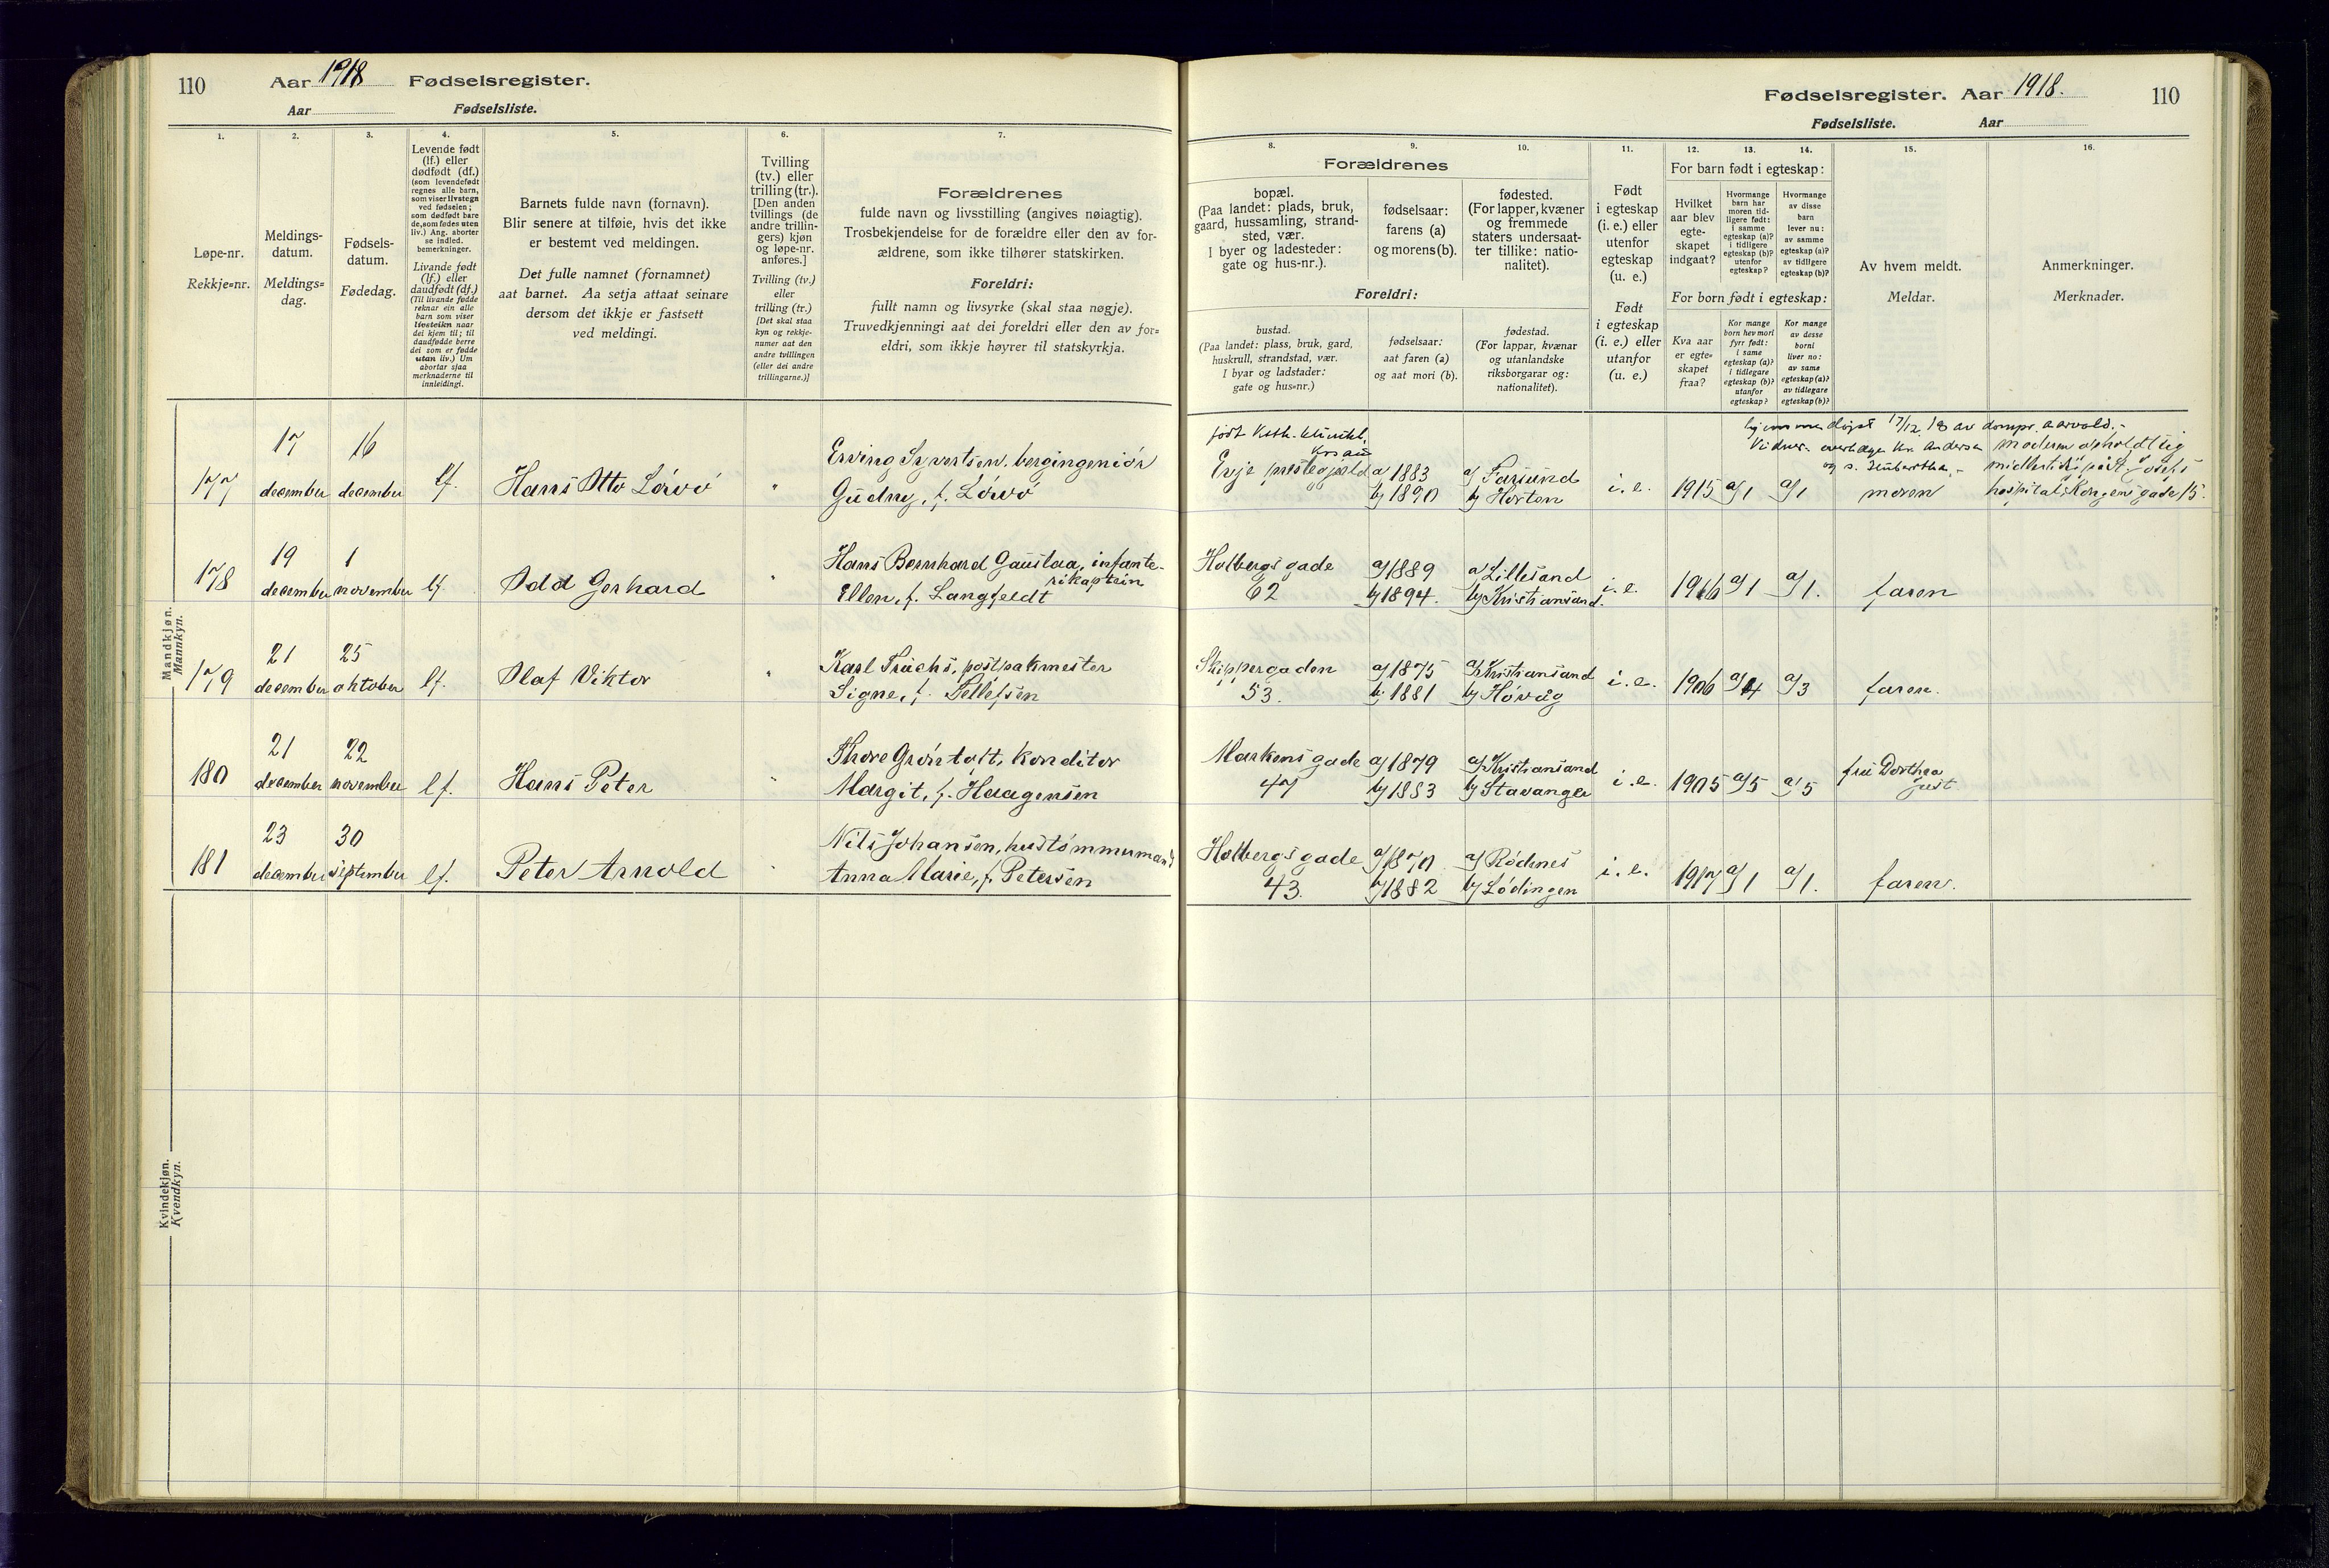 110
Aar 1918 Fødselsregister.
Aar Fødselsliste.
1.
2.
3.
4.
5.
6.
7.
Løpe-nr.
Rekkje=nr.
Meldings-
datum.
Meldings=
dag.
Fødsels-
datum.
Fødedag.
Levende født
(lf.) eller
dødfødt (df.)
(som levendefødt
regnes alle barn,
som viser livstegn
ved fødselen;
som dødfødt bare
de, som fødes uten
liv.) Ang. aborter
se indled.
bemerkninger.
Livande født
(lf.) eller
daudfødt (df.)
(Til livande fødde
reknar ein alle
barn som viser
livsteikn naar
dei kjem til; til
daudfødde berre
dei som er fødde
utan liv.) Um
abortar sjaa
merknaderne til
innleidingi.
Barnets fulde navn (fornavn).
Blir senere at tilføie, hvis det ikke
er bestemt ved meldingen.
Det fulle namnet (fornamnet)
aat barnet. Aa setja attaat seinare
dersom det ikkje er fastsett
ved meldingi.
Tvilling
(tv.) eller
trilling (tr.).
[Den anden
tvillings (de
andre trillin-
gers) kjøn
og løpe-nr.
anføres.]
Tvilling (tv.)
eller
trilling (tr.)
[Det skal staa
kyn og rekkje-
numer aat den
andre tvillingen
(eller dei andre
trillingarne.)]
Forældrenes
fulde navn og livsstilling (angives nøiagtig).
Trosbekjendelse for de forældre eller den av for-
ældrene, som ikke tilhører statskirken.
Foreldri:
fullt namn og livsyrke (skal staa nøgje).
Truvedkjenningi aat dei foreldri eller den av for=
eldri, som ikkje høyrer til statskyrkja.
Mandkjøn.
Mannkyn.
177
17
december
16
december
lf.
Hans Otto Lövö
"
Erving Syvertsen, bergingeniör
Gudny, f. Lövö
178
19
december
1
november
lf.
Odd Gerhard
"
Hans Bernhard Gauslaa, infante-
rikaptein
Ellen, f. Langfeldt
179
21
december
25
oktober
lf.
Olaf Viktor
"
Karl Fuchs, postpakmester
Signe, f. Tellefsen
180
21
december
22
november
lf.
Hans Peter
"
Thore Gröntoft, konditor
Margit, f. Haagensen
181
23
december
30
september
lf.
Peter Arnold
"
Nils Johansen, hustömmermand
Anna Marie, f. Petersen
Kvindekjøn.
Kvendkyn.
Fødselsregister. Aar 1918.
110
Fødselsliste. Aar
8.
9.
10.
11.
12.
13.
14.
15.
16.
Forældrenes
bopæl.
(Paa landet: plads, bruk,
gaard, hussamling, strand-
sted, vær.
I byer og ladesteder:
gate og hus-nr.).
fødselsaar:
farens (a)
og morens (b).
fødested.
(For lapper, kvæner
og fremmede
staters undersaat-
ter tillike: natio-
nalitet).
Foreldri:
bustad.
(Paa landet: plass, bruk, gard,
huskrull, strandstad, vær.
I byar og ladstader:
gate og hus=nr.)
fødselsaar:
aat faren (a)
og aat mori (b).
fødestad.
(For lappar, kvænar
og utanlandske
riksborgarar og:
nationalitet).
Født
i egteskap
(i. e.) eller
utenfor
egteskap
(u. e.)
Født
i egteskap
(i. e.) eller
utanfor
egteskap
(u. e.)
For barn født i egteskap:
Hvilket
aar blev
egte-
skapet
indgaat?
Hvormange
barn har
moren tid-
ligere født:
i samme
egteskap (a)?
i tidligere
egteskap (b)?
utenfor
egteskap?
Hvormange
av disse
barn
lever nu:
av samme
egteskap (a)?
av tidligere
egteskap (b)?
For born født i egteskap:
Kva aar
er egte=
skapet
fraa?
Kor mange
born hev mori
fyrr født:
i same
egteskap (a)?
i tidlegare
egteskap (b)?
utanfor
egteskap?
Kor mange
av desse
borni
liver no:
av same
egteskap (a)?
av tidlegare
egteskap (b)?
Av hvem meldt.
Meldar.
Anmerkninger.
Merknader.
født Kath.
Evje prestegjæld
a/ 1883
b/ 1890
a/ Farsund
b/ Horten
i. e.
1915
a/1
a/1
hjemmedöpt 17/12 18 av dompr. Aarvold.
og s.
moren
moderen opholdt sig
midlertidig på St. Josefs
hospital, Kongensgade 15.
Holbergsgade
62
a/ 1889
b/ 1894.
a/ Lillesand
b/ Kristiansand.
i. e.
1916
a/1
a/1.
faren
Skippergaden
53.
a/ 1875
b/ 1881
a/ Kristiansand
b/ Hövåg
i. e.
1906
a/4
a/3
faren.
Markensgade
47
a/ 1879
b/ 1883
a/ Kristiansand
b/ Stavanger
i. e.
1905
a/5
a/5
fru Dorthea
Just
Holbergsgade
43.
a/ 1870
b/ 1882
a/ Rödenes
b/ Lödingen
i. e.
1917
a/1
a/1.
faren.